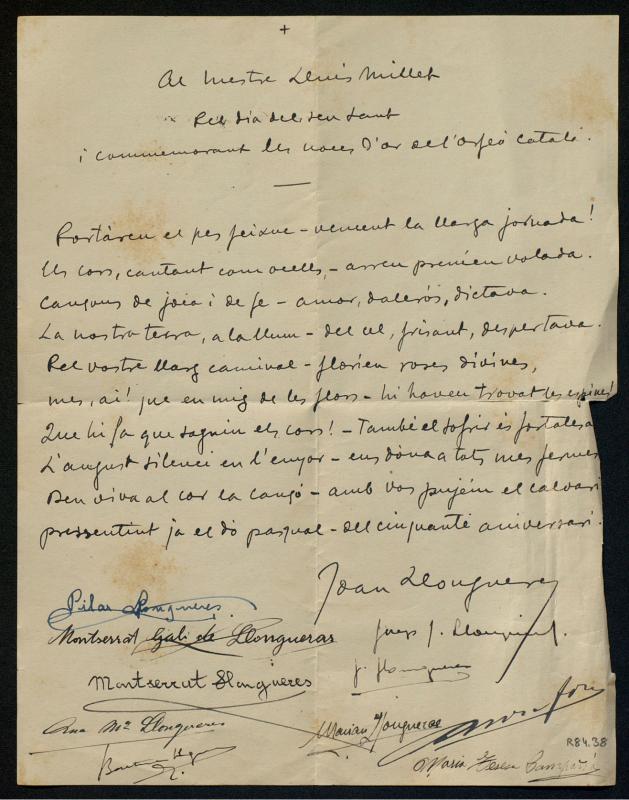 +
Al mestre Lluís Millet
Pel dia del seu sant
i commemorant les noces d'or de l'Orfeó Català.
Portàreu el pes feixuc – vencent la llarga jornada!
Els cors, cantant com ocells, – arreu prenien volada.
Cançons de joia i de fe – amor, dalerós, dictava.
La nostra terra, a la llum – del cel, frisant, despertava.
Pel vostre llarg caminal – florien roses divines,
mes, ai! que en mig de les flors – hi haveu trovat les espines!
Que hi fa que sagnin els cors! – També el sofrir és fortalesa
L'august silenci en l'enyor – ens dóna a tots mes fermesa
Ben viva al cor la cançó – amb vos pugem el calvari
pressentint ja el dó pasqual – del cinquantè aniversari.
Joan Llongueres
Pilar Llongueres
Montserrat Galí de Llongueras
J. Llongueres
Montserrat Llongueres
Ana Mª Llongueres
Marian Llongueras
Maria Teresa
R84.38